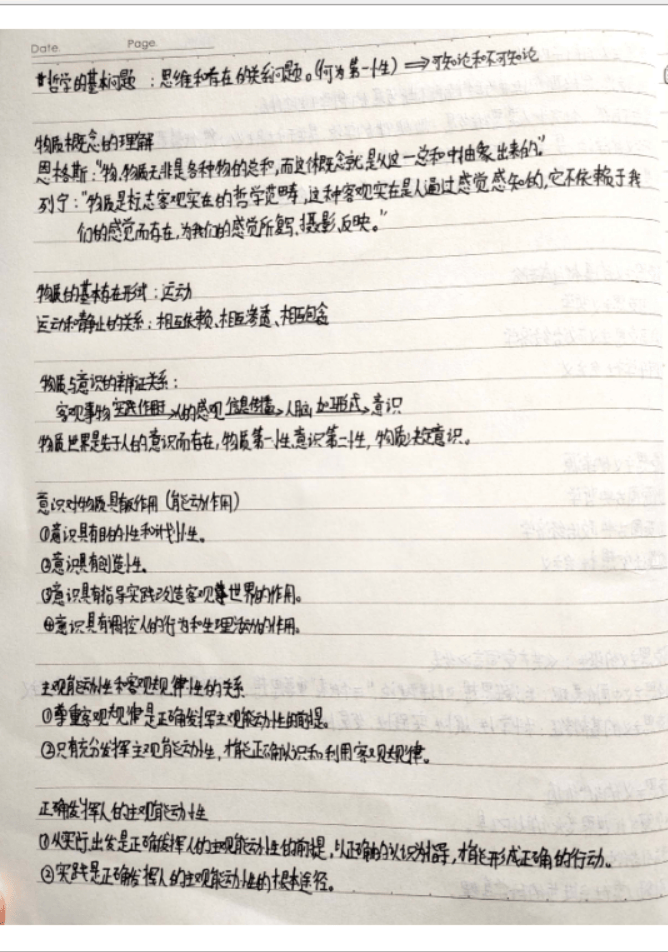 Date.    Page.
#哲学的基本问题：思维和存在的关系问题。(何为第一性) ⟹可知论和不可知论
物质概念的理解
恩格斯：“物、物质无非是各种物的总和，而这个概念就是从这一总和中抽象出来的。”
列宁：“物质是标志客观实在的哲学范畴，这种客观实在是人通过感觉感知的，它不依赖于我
们的感觉而存在，为我们的感觉所复写、摄影、反映。”
物质的基本存在形式：运动
运动和静止的关系：相互依赖、相互渗透、相互包含
物质与意识的辩证关系：
客观事物 实践作用于→人的感观 信息传播→人脑 加工形式→意识
物质世界是先于人的意识而存在，物质第一性意识第二性，物质决定意识。
意识对物质具有反作用（能动作用）
①意识具有目的性和计划性。
②意识具有创造性。
③意识具有指导实践改造客观世界的作用。
④意识具有调控人的行为和生理活动的作用。
主观能动性和客观规律性的关系
①尊重客观规律是正确发挥主观能动性的前提。
②只有充分发挥主观能动性，才能正确认识和利用客观规律。
正确发挥人的主观能动性
①从实际出发是正确发挥人的主观能动性的前提，以正确的认识为指导，才能形成正确的行动。
②实践是正确发挥人的主观能动性的根本途径。